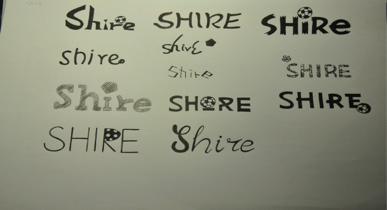 Shire SHIRE SHiRe
shire shire
Shire SHIRE
Shire SHIRE SHIRE
SHIRE Shire